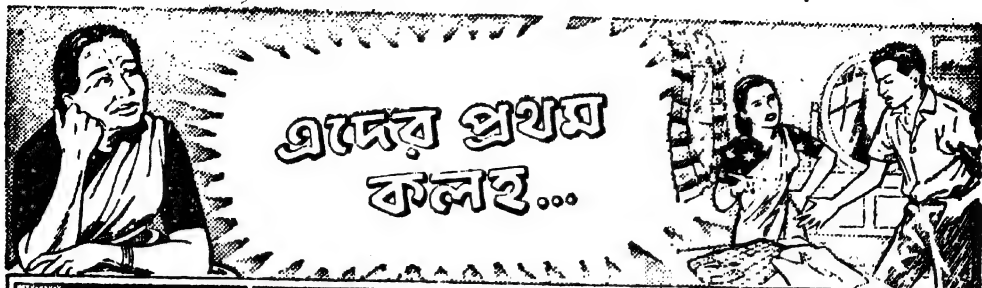 এদের প্রথম
কলহ...